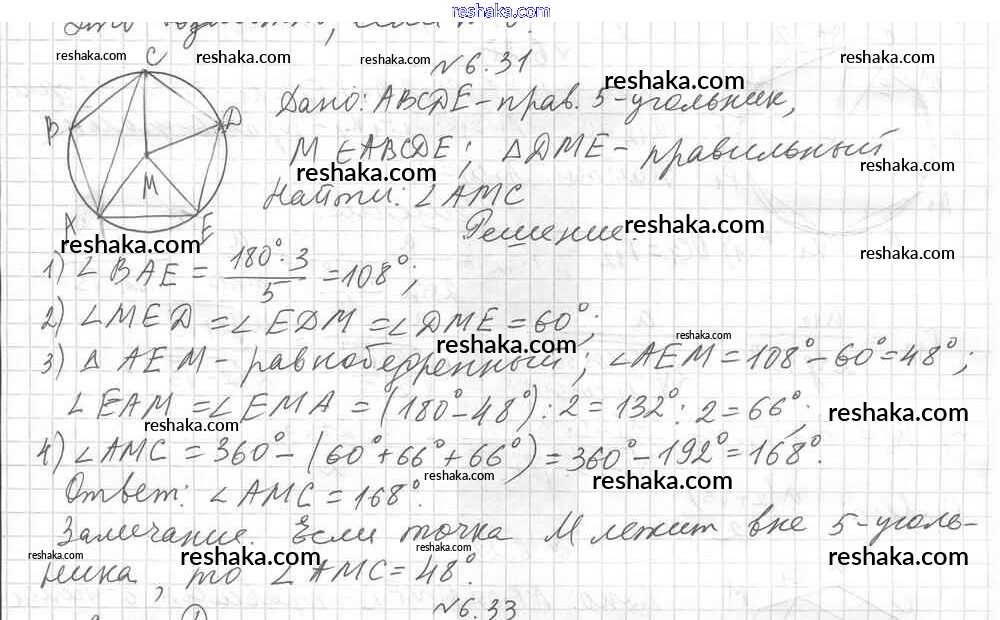 reshaka.com
reshaka.com
reshaka.com
reshaka.com
reshaka.com
№6.31
reshaka.com
C
B
D
M
A
E
Дано: ABCDE – прав. 5-угольник,
M ∈ ABCDE; △DME – правильный
reshaka.com
reshaka.com
Найти: ∠AMC
Решение.
reshaka.com
reshaka.com
reshaka.com
1) ∠BAE = 180°·3/5 = 108°;
2) ∠MED = ∠EDM = ∠DME = 60°;
reshaka.com
reshaka.com
3) △AEM – равнобедренный; ∠AEM = 108° – 60° = 48°;
∠EAM = ∠EMA = (180° – 48°):2 = 132°:2 = 66°;
reshaka.com
reshaka.com
4) ∠AMC = 360° – (60° + 66° + 66°) = 360° – 192° = 168°.
reshaka.com
reshaka.com
Ответ: ∠AMC = 168°.
Замечание. Если точка M лежит вне 5-уголь-
reshaka.com
reshaka.com
reshaka.com
reshaka.com
ника, то ∠AMC = 48°.
№6.33